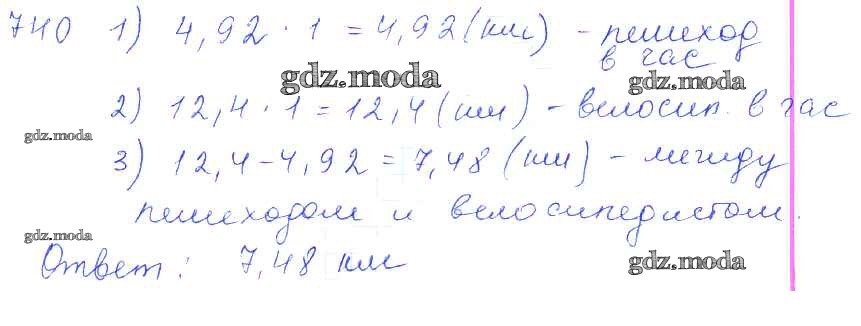 740 1) 4,92 · 1 = 4,92 (км) - пешеход
в час
gdz.moda
gdz.moda
2) 12,4 · 1 = 12,4 (км) - велосип. в час
gdz.moda
3) 12,4 - 4,92 = 7,48 (км) - между
пешеходом и велосипедистом.
gdz.moda
Ответ: 7,48 км
gdz.moda